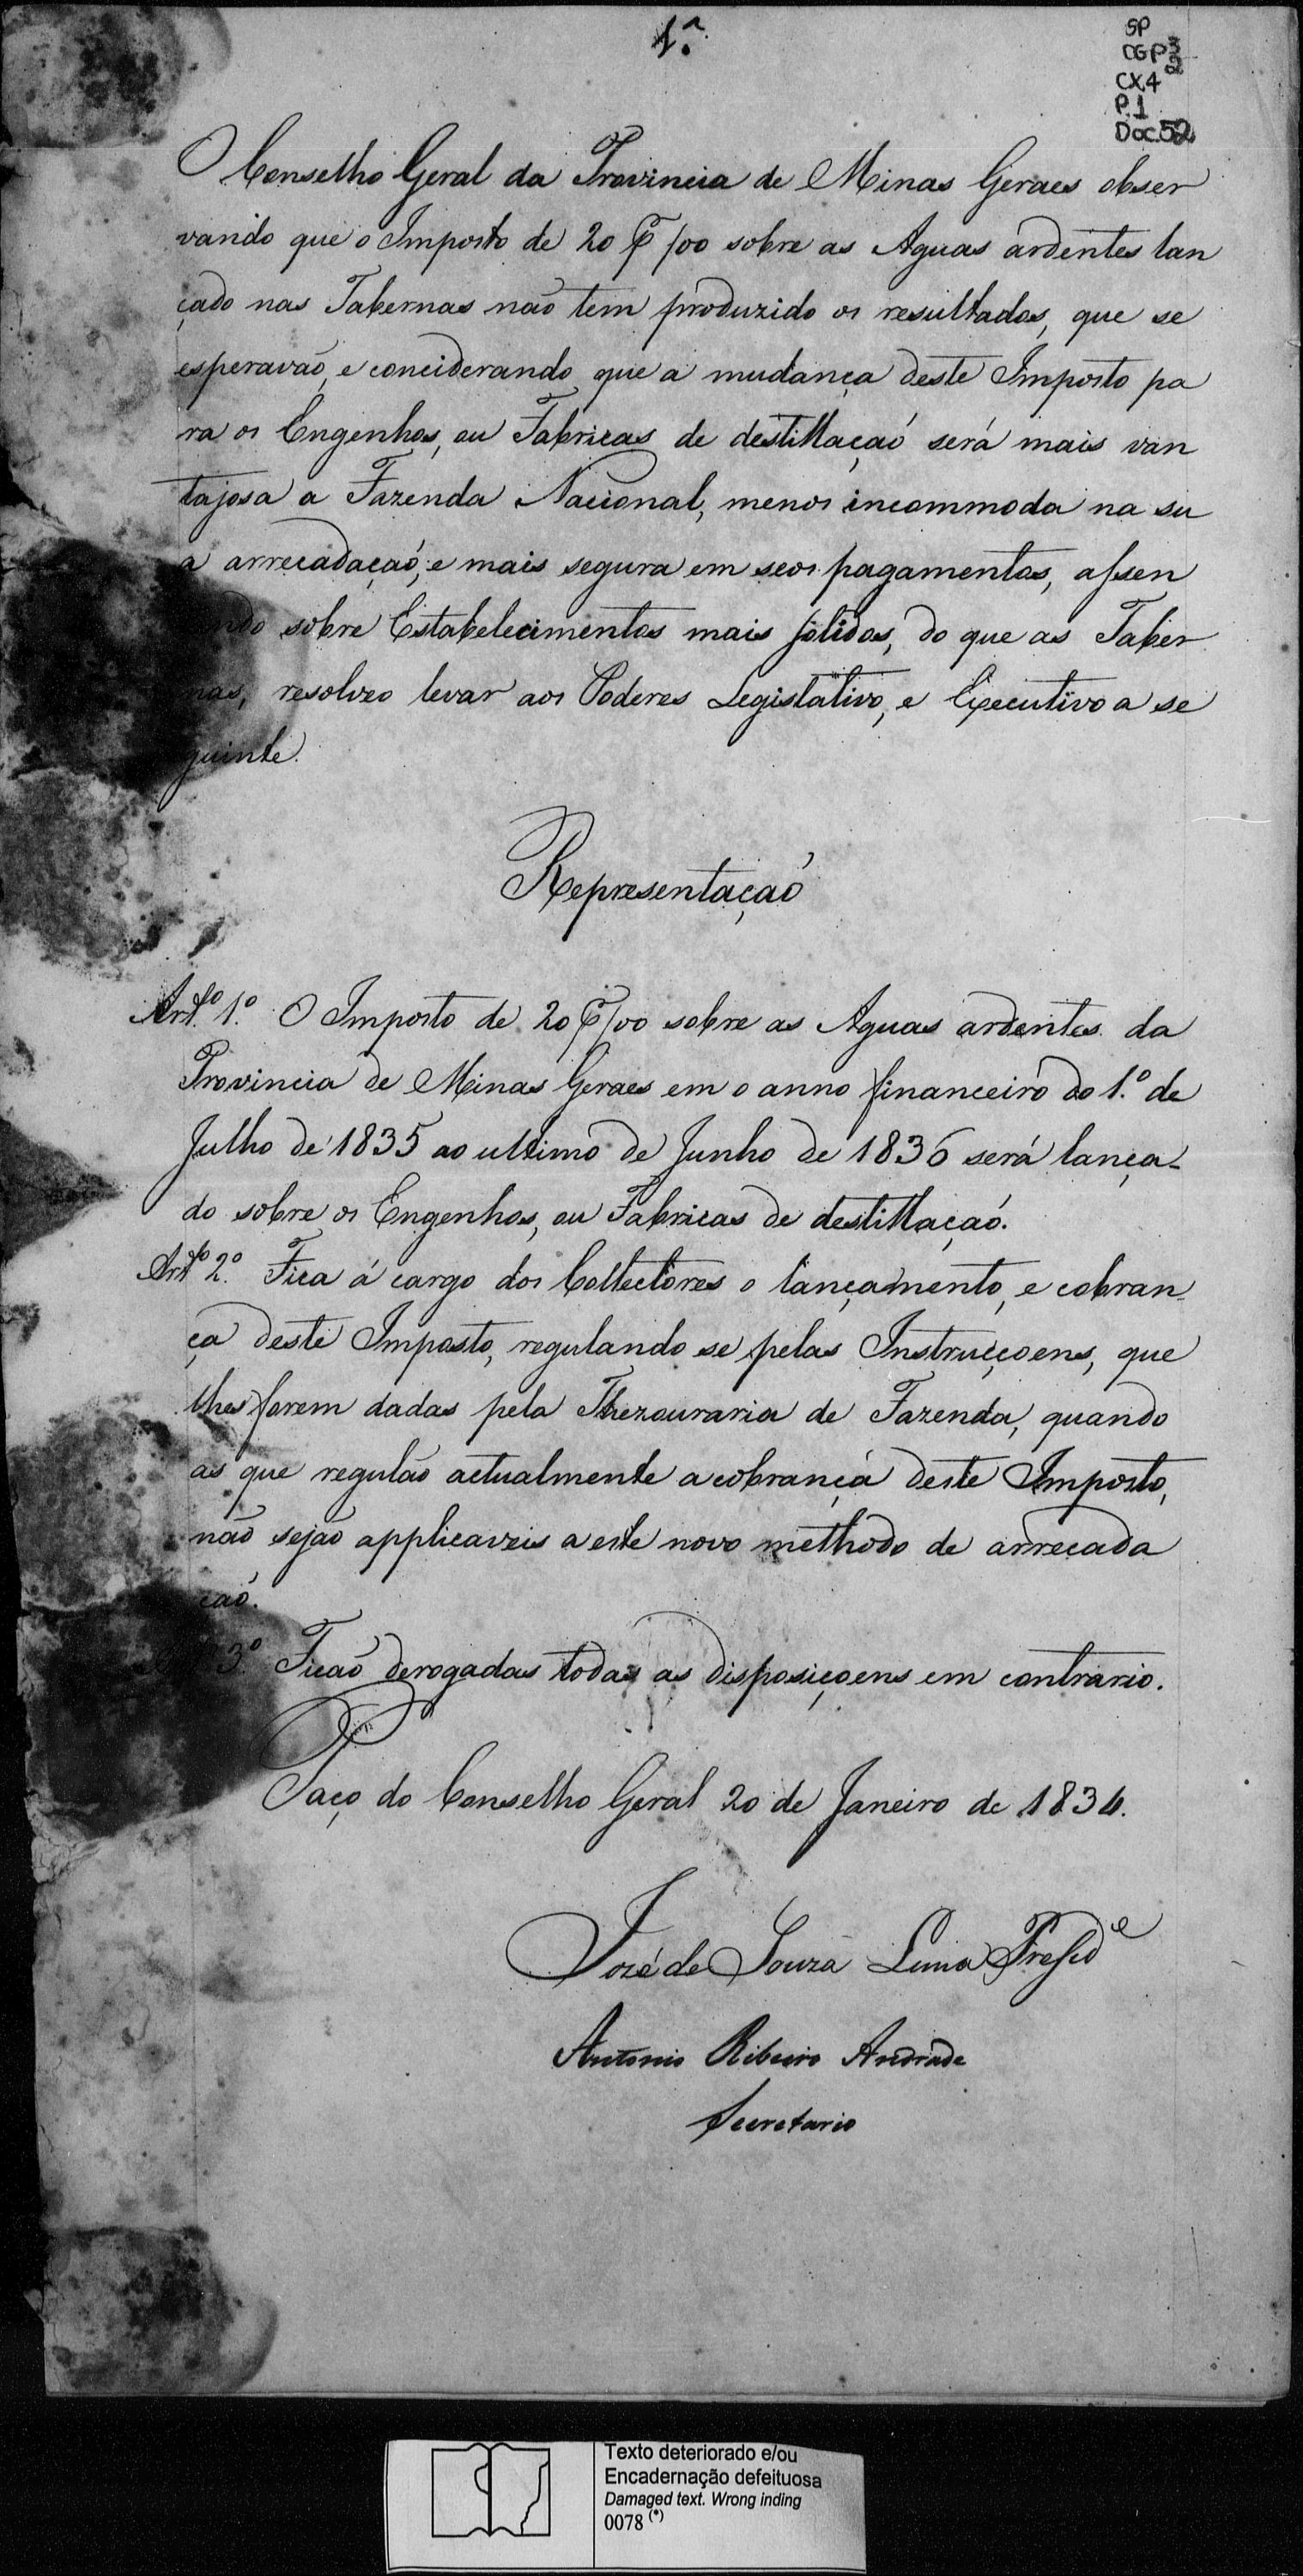 1ª
SP
CGP3
2
CX.4
P.1
Doc.52
O Conselho Geral da Provincia de Minas Geraes obser
vando que o Imposto de 20 P/00 sobre as Aguas ardentes lan
çado nas Tabernas não tem produzido os resultados, que se
esperavão, e conciderando que a mudança deste Imposto pa
ra os Engenhos, ou Fabricas de destillação será mais van
tajosa a Fazenda Nacional, menos incommoda na su
a arrecadação, e mais segura em seos pagamentos, assen
ndo sobre Estabelecimentos mais solidos, do que as Taber
nas, resolveo levar aos Poderes Legislativo, e Executivo a se
guinte.
Representação
Artº 1º. O Imposto de 20 P/00 sobre as Aguas ardentes da
Provincia de Minas Geraes em o anno financeiro do 1º. de
Julho de 1835 ao ultimo de Junho de 1836 será lança-
do sobre os Engenhos, ou Fabricas de destillação.
Artº 2º. Fica á cargo dos Collectores o lançamento, e cobran
ça deste Imposto, regulando se pelas Instrucçoens, que
lhes forem dadas pela Thezouraria de Fazenda, quando
as que regulão actualmente a cobrança deste Imposto,
não sejão applicaveis a este novo methodo de arrecada
ção.
3º. Ficão derogadas todas as disposiçoens em contrario.
Paço do Conselho Geral 20 de Janeiro de 1834.
Jozé de Souza Lima Presidᵉ
Antonio Ribeiro Andrade
Secretario
Texto deteriorado e/ou
Encadernação defeituosa
Damaged text. Wrong inding
0078 (*)